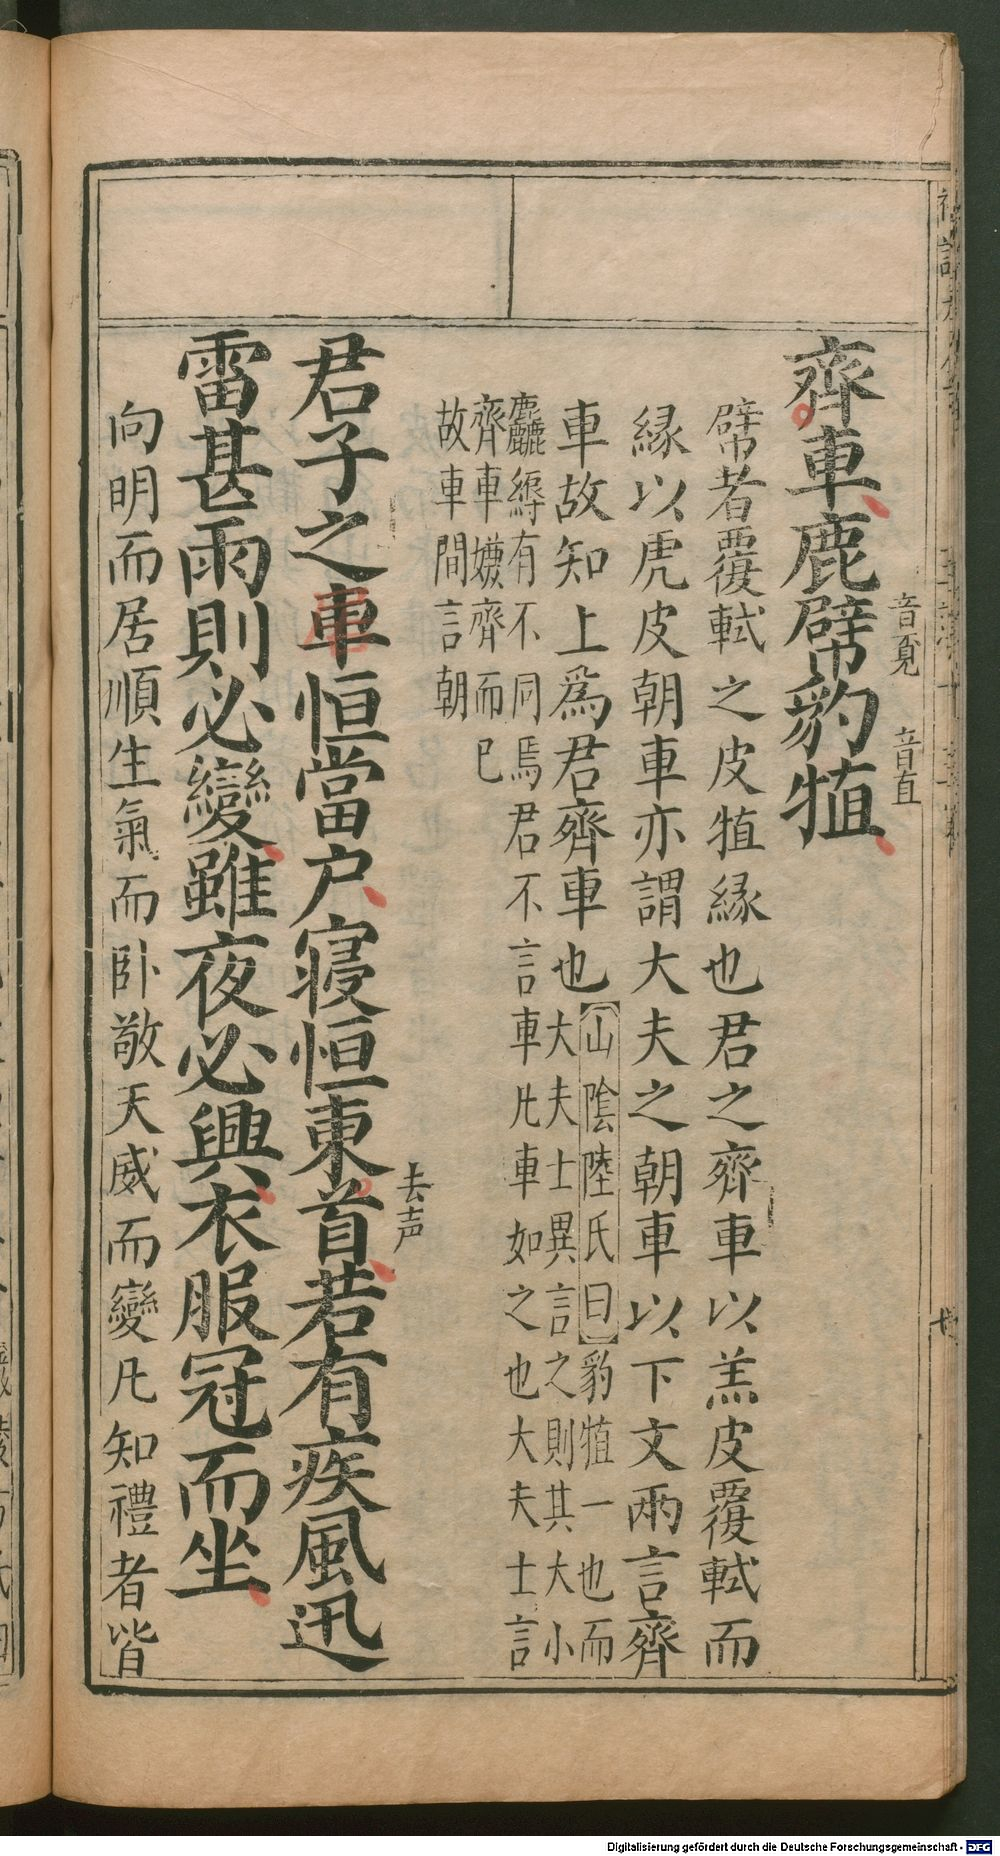 齊車鹿幦豹犆
音覓
音直
幦者覆軾之皮犆緣也君之齊車以羔皮覆軾而
緣以虎皮朝車亦謂大夫之朝車以下文兩言齊
車故知上爲君齊車也
山陰陸氏曰豹犆一也而
大夫士異言之則其大小
麤縟有不同焉君不言車凡車如之也大夫士言
齊車嫌齊而已
故車間言朝
君子之車恒當户寝恒東首若有疾風迅
去声
雷甚雨則必變雖夜必興衣服冠而坐
向明而居順生氣而卧敬天威而變凡知禮者皆
Digitalisierung gefördert durch die Deutsche Forschungsgemeinschaft - DFG